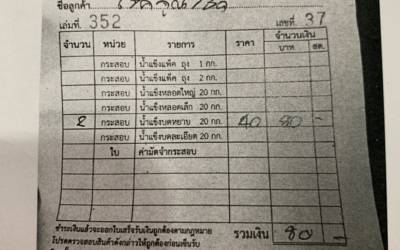 ชื่อลูกค้า
เล่มที่. 352 เลขที่. 37
จำนวน หน่วย รายการ ราคา จำนวนเงิน
บาท สต.
กระสอบ น้ำแข็งแพ็ค ถุง 1 กก.
กระสอบ น้ำแข็งแพ็ค ถุง 2 กก.
กระสอบ น้ำแข็งหลอดใหญ่ 20 กก.
กระสอบ น้ำแข็งหลอดเล็ก 20 กก.
2 กระสอบ น้ำแข็งบดหยาบ 20 กก. 40 80 -
กระสอบ น้ำแข็งบดละเอียด 20 กก.
ใบ ค่ามัดจำกระสอบ
ชำระเงินแล้วจะออกใบเสร็จรับเงินถูกต้องตามกฎหมาย
โปรดตรวจสอบสินค้าดังกล่าวให้ถูกต้องก่อนเซ็นรับ รวมเงิน 80 -